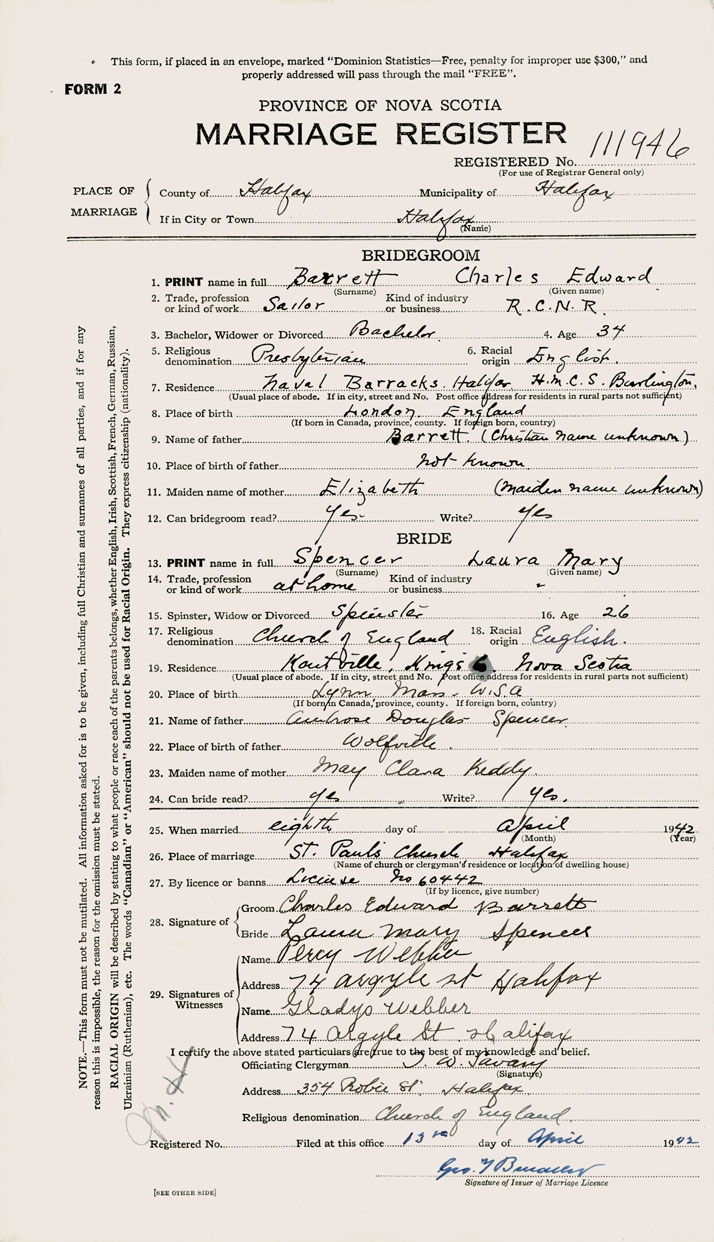 This form, if placed in an envelope, marked "Dominion Statistics—Free, penalty for improper use $300," and
properly addressed will pass through the mail "FREE".
FORM 2
PROVINCE OF NOVA SCOTIA
MARRIAGE REGISTER
REGISTERED No. 111946
(For use of Registrar General only)
PLACE OF MARRIAGE
County of Halifax Municipality of Halifax
If in City or Town Halifax
(Name)
BRIDEGROOM
1. PRINT name in full Barrett Charles Edward
(Surname) (Given name)
2. Trade, profession or kind of work Sailor Kind of industry or business R.C.N.R.
3. Bachelor, Widower or Divorced Bachelor 4. Age 34
5. Religious denomination Presbyterian 6. Racial origin English.
7. Residence Naval Barracks. Halifax H.M.C.S. Burlington.
(Usual place of abode. If in city, street and No. Post office address for residents in rural parts not sufficient)
8. Place of birth London, England
(If born in Canada, province, county. If foreign born, country)
9. Name of father Barrett (Christian name unknown)
10. Place of birth of father not known
11. Maiden name of mother Elizabeth (maiden name unknown)
12. Can bridegroom read? Yes Write? Yes
BRIDE
13. PRINT name in full Spencer Laura Mary
(Surname) (Given name)
14. Trade, profession or kind of work at home Kind of industry or business "
15. Spinster, Widow or Divorced Spinster 16. Age 26
17. Religious denomination Church of England 18. Racial origin English.
19. Residence Kentville, Kings Nova Scotia
(Usual place of abode. If in city, street and No. Post office address for residents in rural parts not sufficient)
20. Place of birth Lynn Mass. U.S.A
(If born in Canada, province, county. If foreign born, country)
21. Name of father Ambrose Douglas Spencer
22. Place of birth of father Wolfville.
23. Maiden name of mother May Clara Keddy.
24. Can bride read? yes Write? yes.
25. When married eighth day of April 1942
(Month) (Year)
26. Place of marriage St. Paul's Church Halifax
(Name of church or clergyman's residence or location of dwelling house)
27. By licence or banns License No 60442
(If by licence, give number)
28. Signature of
Groom Charles Edward Barrett
Bride Laura Mary Spencer
29. Signatures of Witnesses
Name Percy Webber
Address 74 Argyle st Halifax
Name Gladys Webber
Address 74 Argyle St Halifax
I certify the above stated particulars are true to the best of my knowledge and belief.
Officiating Clergyman T. W. Savary
(Signature)
Address 354 Robie St. Halifax
Religious denomination Church of England.
Registered No. Filed at this office 13th day of April 1942
Signature of Issuer of Marriage Licence
[SEE OTHER SIDE]
NOTE.—This form must not be mutilated. All information asked for is to be given, including full Christian and surnames of all parties, and if for any
reason this is impossible, the reason for the omission must be stated.
RACIAL ORIGIN will be described by stating to what people or race each of the parents belongs, whether English, Irish, Scottish, French, German, Russian,
Ukrainian (Ruthenian), etc. The words "Canadian" or "American" should not be used for Racial Origin. They express citizenship (nationality).